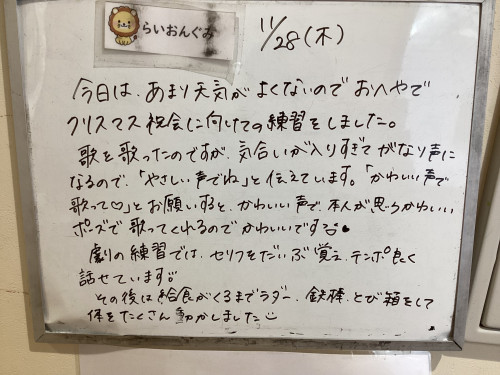 らいおんぐみ
11/28(木)
今日は、あまり天気がよくないので おへやで
クリスマス祝会に向けての練習をしました。
歌を歌ったのですが、気合いが入りすぎて がなり声に
なるので、「やさしい声でね」と伝えています。「かわいい声で
歌って♡」とお願いすると、かわいい声で、本人が思うかわいい
ポーズで歌ってくれるのでかわいいです
劇の練習では、セリフをだいぶ覚え、テンポ良く
話せています。
その後は給食がくるまでラダー、鉄棒、とび箱をして
体をたくさん動かしました